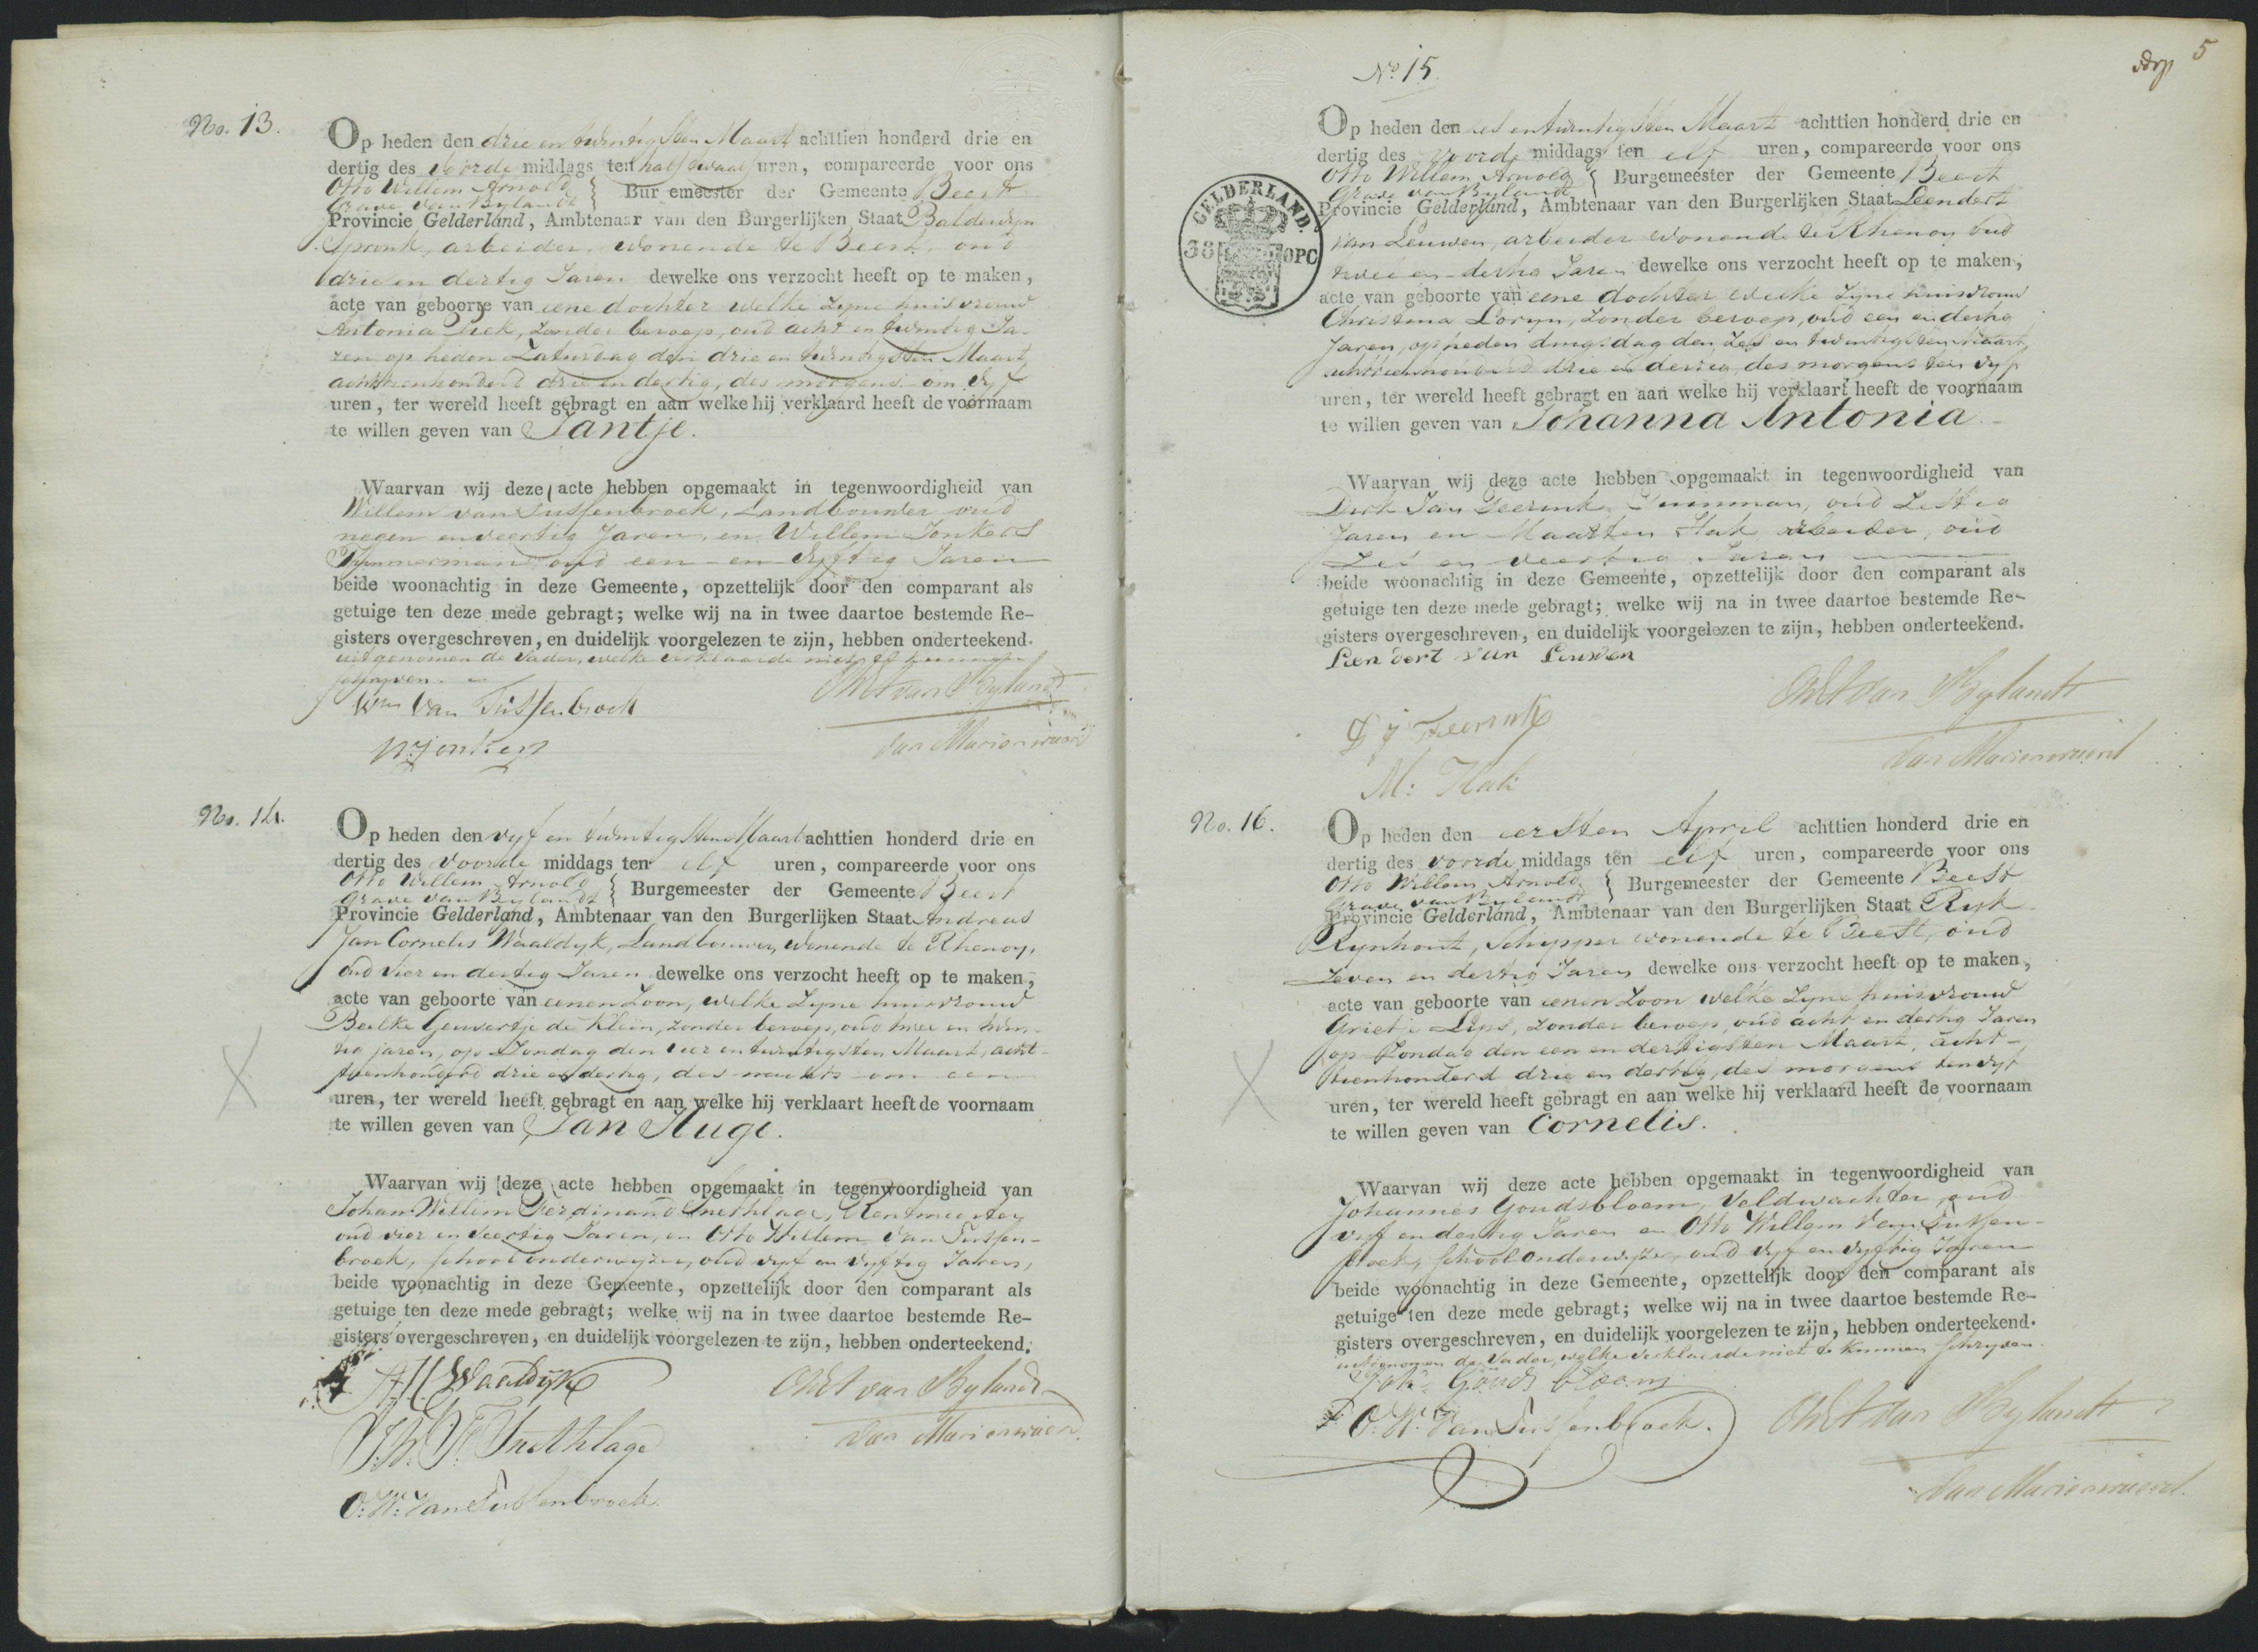 No. 13.
Op heden den drie en twintigsten Maart achttien honderd drie en
dertig des voorde middags ten half twaalf uren, compareerde voor ons
Otto Willem Arnold
Grave van Bylandt } Bur emeester der Gemeente Beest
Provincie Gelderland, Ambtenaar van den Burgerlijken Staat Baldewyn
Spronk, arbeider, wonende te Beest, oud
drie en dertig Jaren dewelke ons verzocht heeft op te maken,
acte van geboorte van eene dochter welke zyne huisvrouw
Antonia zonder beroep, oud acht en twintig Ja-
ren op heden Zaturdag den drie en twintigsten Maart,
achttienhonderd drie en dertig, des morgens om vyf
uren, ter wereld heeft gebragt en aan welke hij verklaard heeft de voornaam
te willen geven van Jantje.
Waarvan wij deze acte hebben opgemaakt in tegenwoordigheid van
Willem van Tussenbroek, Landbouwer oud
negen en veertig Jaren, en Willem Jonkers
Tymmerman oud een en vyftig Jaren
beide woonachtig in deze Gemeente, opzettelijk door den comparant als
getuige ten deze mede gebragt; welke wij na in twee daartoe bestemde Re-
gisters overgeschreven, en duidelijk voorgelezen te zijn, hebben onderteekend.
uitgenomen de vader, welke verklaarde niet te kunnen
schryven.
Wm van Tussenbroek
OWA van Bylandt
W Jonkers
van Marienwaerd
No. 14.
Op heden den vyf en twintigsten Maart achttien honderd drie en
dertig des voorde middags ten elf uren, compareerde voor ons
Otto Willem Arnold
Grave van Bylandt } Burgemeester der Gemeente Beest
Provincie Gelderland, Ambtenaar van den Burgerlijken Staat Andreas
Jan Cornelis Waaldyk, Landbouwer, wonende te Rhenoy,
oud vier en dertig Jaren dewelke ons verzocht heeft op te maken,
acte van geboorte van eenen Zoon, welke zyne huisvrouw
Beelke Geuvertje de Klein, zonder beroep, oud twee en twin-
tig jaren, op Zondag den vier en twintigsten Maart, acht-
tienhonderd drie en dertig, des om een
uren, ter wereld heeft gebragt en aan welke hij verklaart heeft de voornaam
te willen geven van Jan Huge.
Waarvan wij deze acte hebben opgemaakt in tegenwoordigheid van
Johan Willem Ferdinand Inethlage, Rentmeester
oud vier en veertig Jaren, en Otto Willem van Tussen-
broek, schoolonderwyzer, oud vyf en vyftig Jaren,
beide woonachtig in deze Gemeente, opzettelijk door den comparant als
getuige ten deze mede gebragt; welke wij na in twee daartoe bestemde Re-
gisters overgeschreven, en duidelijk voorgelezen te zijn, hebben onderteekend.
Waaldyk
OWA van Bylandt
J. W. F. Inethlage
van Marienwaerd.
O. W. van Tussenbroek.
5
No 15.
GELDERLAND.
38 OPC
Op heden den zes en twintigsten Maart achttien honderd drie en
dertig des voorde middags ten elf uren, compareerde voor ons
Otto Willem Arnold
Grave van Bylandt } Burgemeester der Gemeente Beest
Provincie Gelderland, Ambtenaar van den Burgerlijken Staat Leendert
van Leuwen, arbeider wonende te Rhenoy oud
twee en dertig Jaren dewelke ons verzocht heeft op te maken,
acte van geboorte van eene dochter welke zyne huisvrouw
Christina Loryn, zonder beroep, oud een en dertig
Jaren, op heden dingsdag den zes en twintigsten Maart
achttienhonderd drie en dertig des morgens ten vyf
uren, ter wereld heeft gebragt en aan welke hij verklaart heeft de voornaam
te willen geven van Johanna Antonia.
Waarvan wij deze acte hebben opgemaakt in tegenwoordigheid van
Dirk Jan Geerink oud zestig
Jaren en Maarten Hak arbeider, oud
zes en veertig Jaren
beide woonachtig in deze Gemeente, opzettelijk door den comparant als
getuige ten deze mede gebragt; welke wij na in twee daartoe bestemde Re-
gisters overgeschreven, en duidelijk voorgelezen te zijn, hebben onderteekend.
Leendert van Leuwen
OWA van Bylandt
D J Geerink
van Marienwaerd
M: Hak
No. 16.
Op heden den eersten April achttien honderd drie en
dertig des voorde middags ten elf uren, compareerde voor ons
Otto Willem Arnold
Grave van Bylandt } Burgemeester der Gemeente Beest
Provincie Gelderland, Ambtenaar van den Burgerlijken Staat Ryk
Rynhout, Schipper wonende te Beest, oud
zeven en dertig Jaren dewelke ons verzocht heeft op te maken,
acte van geboorte van eenen Zoon welke zyne huisvrouw
Grietje Lips, zonder beroep, oud acht en dertig Jaren
op Zondag den een en dertigsten Maart, acht-
tienhonderd drie en dertig, des morgens ten vyf
uren, ter wereld heeft gebragt en aan welke hij verklaard heeft de voornaam
te willen geven van Cornelis.
Waarvan wij deze acte hebben opgemaakt in tegenwoordigheid van
Johannes Goudsbloem, Veldwachter oud
vyf en dertig Jaren en Otto Willem van Tussen-
broek, schoolonderwyzer, oud vyf en vyftig Jaren
beide woonachtig in deze Gemeente, opzettelijk door den comparant als
getuige ten deze mede gebragt; welke wij na in twee daartoe bestemde Re-
gisters overgeschreven, en duidelijk voorgelezen te zijn, hebben onderteekend.
uitgenomen de Vader, welke verklaarde niet te kunnen schryven.
Joh: Goudsbloem
O. W. van Tussenbroek.
OWA van Bylandt
van Marienwaerd.